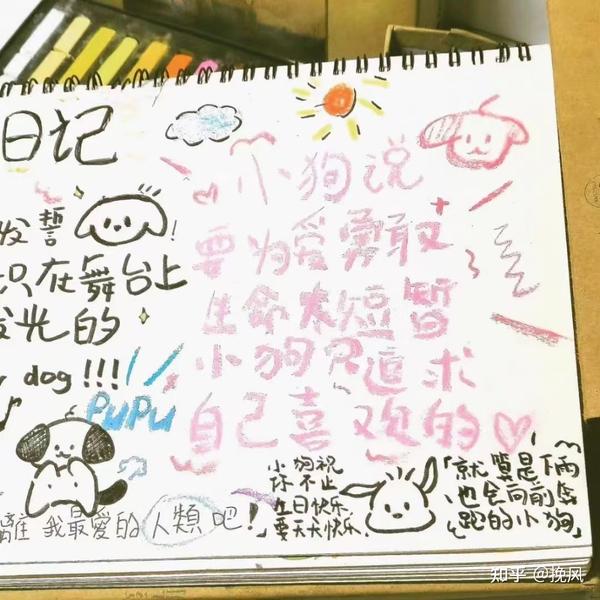 日记
发誓
!
只在舞台上
发光的
dog!!!
PUPU
小狗说
要为爱勇敢
生命太短暂
小狗只追求
自己喜欢的
小狗祝
你不止
生日快乐,
要天天快乐.
「就算是下雨
也会向前
跑的小狗」
離 我最爱的人類吧!
知乎 @挽风